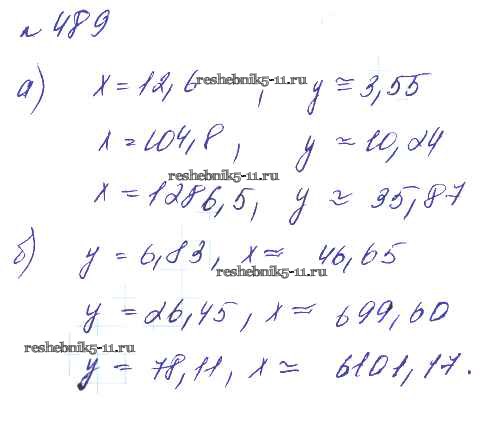 № 489
а) x = 12,6, y ≅ 3,55
reshebnik5-11.ru
x = 104,8, y ≈ 10,24
reshebnik5-11.ru
x = 1286,5, y ≈ 35,87
б) y = 6,83, x ≈ 46,65
reshebnik5-11.ru
y = 26,45, x ≈ 699,60
reshebnik5-11.ru
y = 78,11, x ≃ 6101,17.